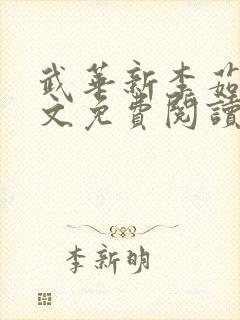 武華新李茹
文免費閱讀
李新明